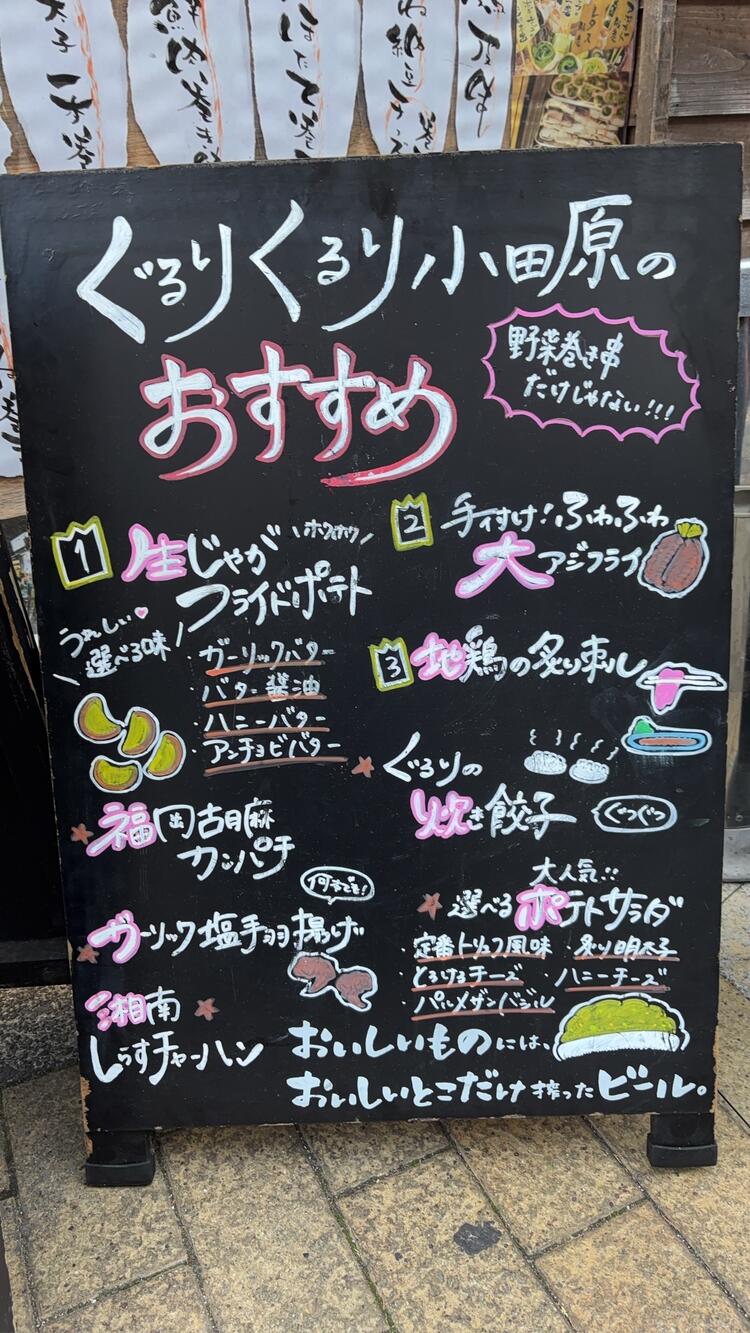 ぐるりくるり小田原の
おすすめ
野菜巻き串
だけじゃない!!!
1 生じゃが
フライドポテト
ホクホク
うれしい
選べる味
ガーリックバター
バター醤油
ハニーバター
アンチョビバター
2 手付け!ふわふわ
大アジフライ
3 地鶏の炙り刺し
ぐるりの
炊き餃子
ぐつぐつ
福岡古胡麻
カンパチ
大人気!!
選べるポテトサラダ
・定番トリュフ風味
・炙り明太子
・とろけるチーズ
・ハニーチーズ
・パルメザンバジル
ガーリック塩手羽揚げ
湘南
しらすチャーハン
おいしいものには、
おいしいとこだけ搾ったビール。